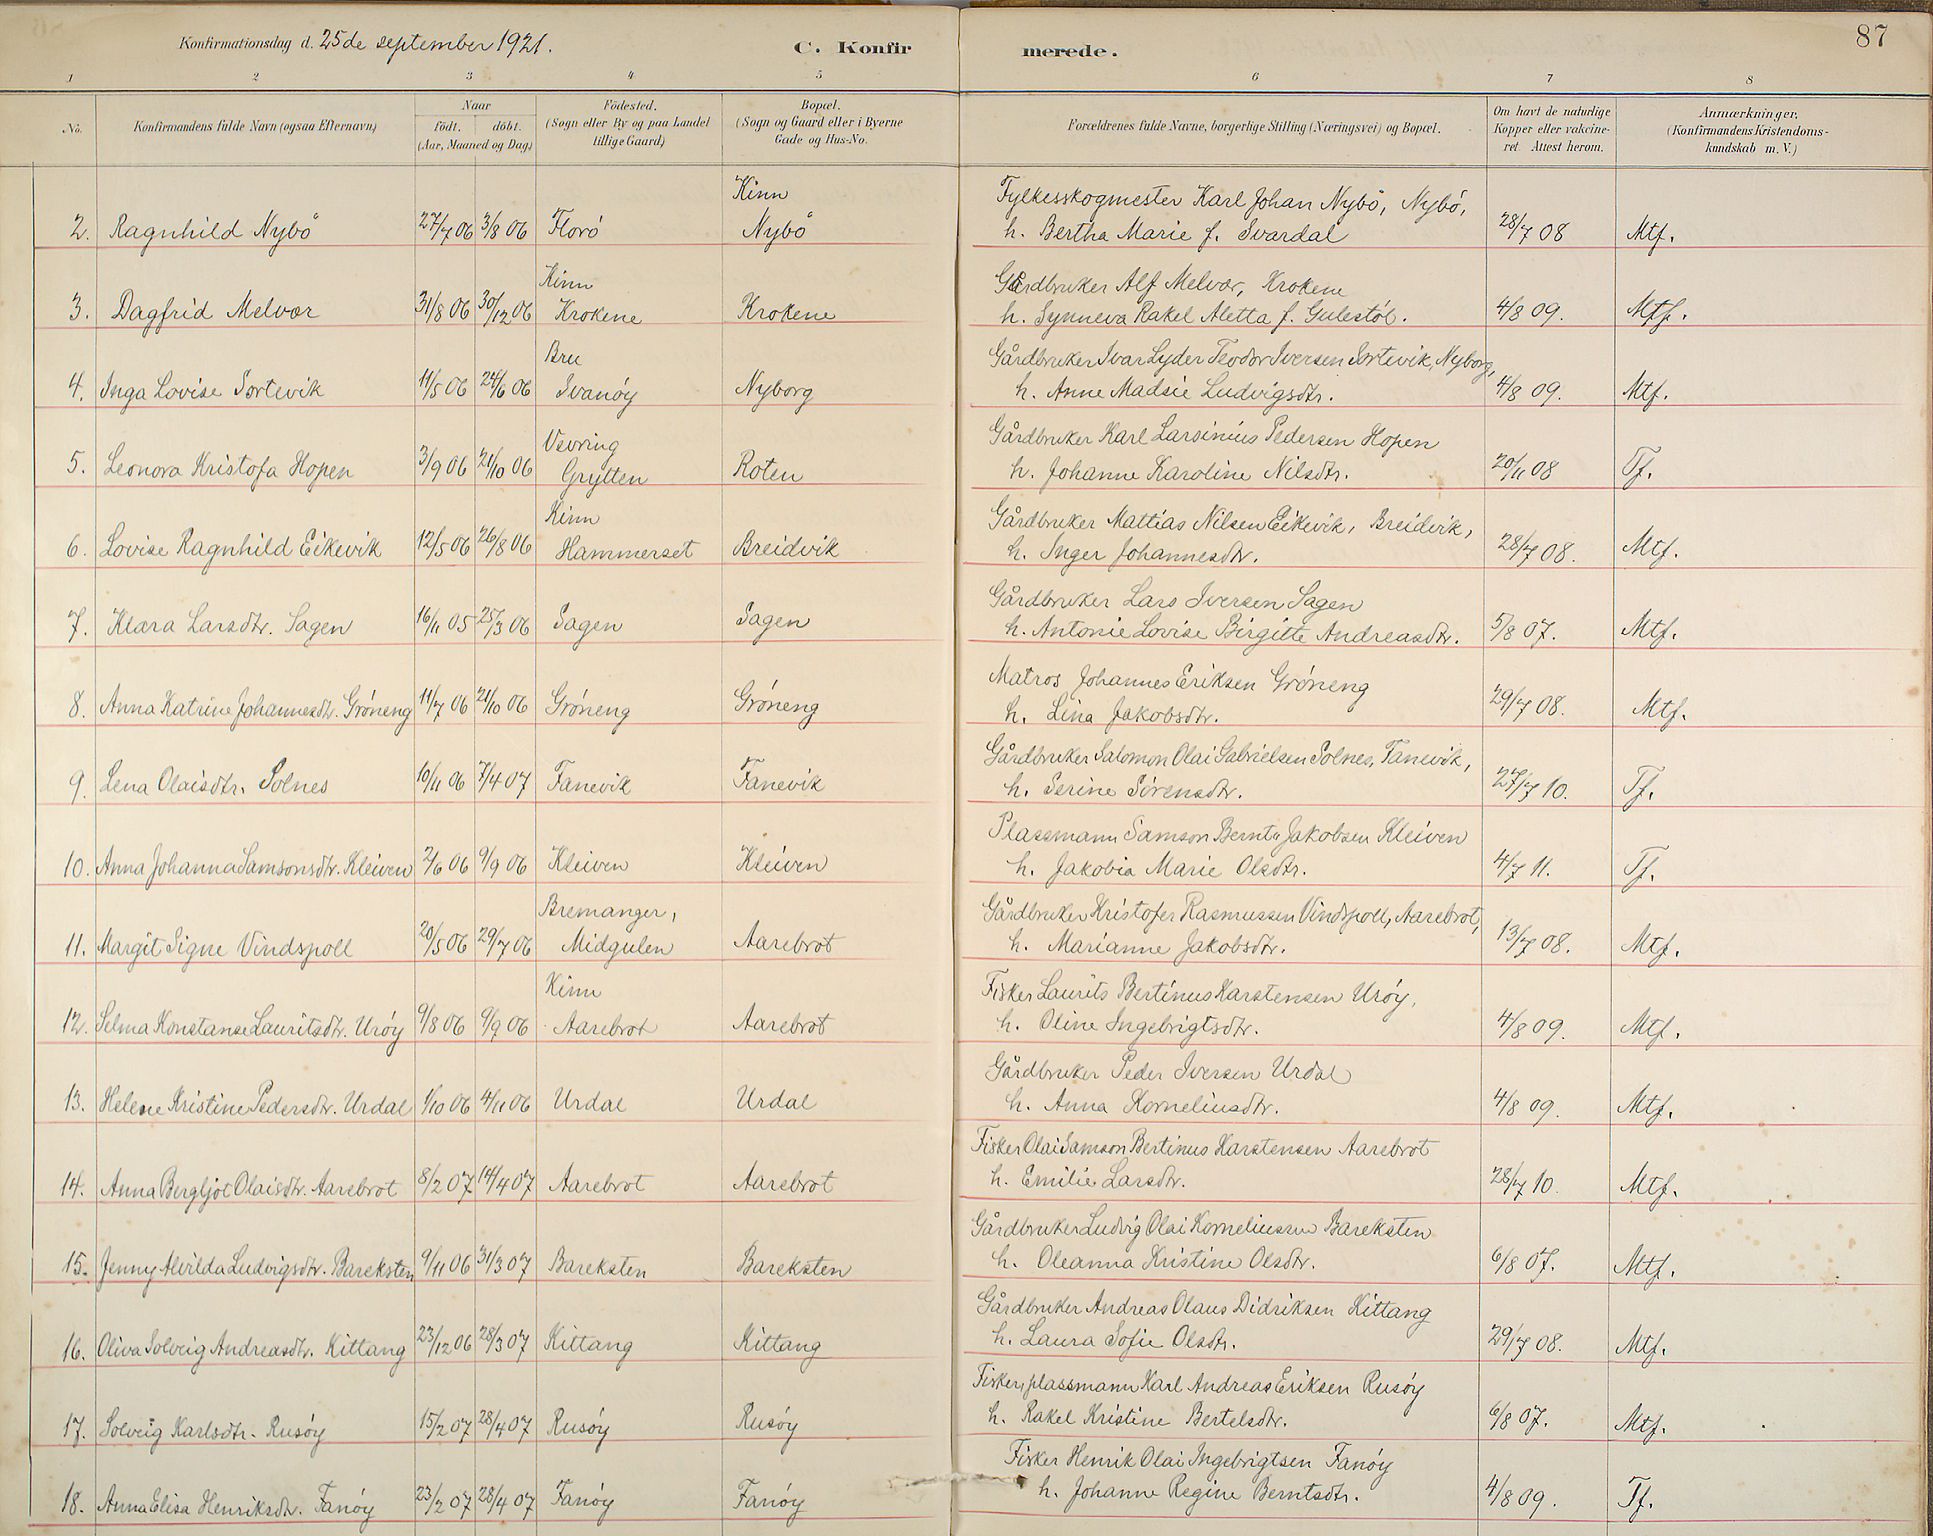 Konfirmationsdag d. 25de september 1921.
C. Konfirmerede.
87
1 2 3 4 5 6 7 8
No.
Konfirmandens fulde Navn (ogsaa Efternavn)
Naar
født. døbt.
(Aar, Maaned og Dag)
Födested.
(Sogn eller By og paa Landet
tillige Gaard)
Bopæl.
(Sogn og Gaard eller i Byerne
Gade og Hus-No.
Forældrenes fulde Navne, borgerlige Stilling (Næringsvei) og Bopæl.
Om havt de naturlige
Kopper eller vakcine-
ret. Attest herom.
Anmærkninger.
(Konfirmandens Kristendoms-
kundskab m. V.)
Kinn Fylkesskogmester Karl Johan Nybö, Nybó,
2. Ragnhild Nybö 27/7 06 3/8 06 Floró Nybö h. Bertha Marie f. Svardal 28/7 08 Mtf.
Kinn Gårdbruker Alf Melvær, Krokene
3. Dagfrid Melvær 31/8 06 30/12 06 Krokene Krokene h. Synneva Rakel Aletta f. Gulestöl. 4/8 09. Mtf.
Bru Gårdbruker Ivar Lyder Teodor Iversen Sortevik, Nyborg,
4. Inga Lovise Sortevik 11/5 06 24/6 06 Svanóy Nyborg h. Anne Madsie Ludvigsdtr. 4/8 09. Mtf.
Vevring Gårdbruker Karl Larsinius Pedersen Hopen
5. Leonora Kristofa Hopen 3/9 06 21/10 06 Grytten Roten h. Johanne Karoline Nilsdtr. 20/11 08 Tf.
Kinn Gårdbruker Mattias Nilsen Eikevik, Breidvik,
6. Lovise Ragnhild Eikevik 12/5 06 26/8 06 Hammerset Breidvik h. Inger Johannesdtr. 28/7 08. Mtf.
Gårdbruker Lars Iversen Sagen
7. Klara Larsdtr. Sagen 16/11 05 25/3 06 Sagen Sagen h. Antonie Lovise Birgitte Andreasdtr. 5/8 07. Mtf.
Matros Johannes Eriksen Gróneng
8. Anna Katrine Johannesdtr. Gróneng 11/7 06 21/10 06 Gróneng Gróneng h. Lina Jakobsdtr. 29/7 08. Mtf.
Gårdbruker Salomon Olai Gabrielsen Solnes, Fanevik,
9. Lena Olaisdtr. Solnes 10/11 06 7/4 07 Fanevik Fanevik h. Serine Sörensdtr. 27/7 10. Tf.
Plassmann Samson Bernt Jakobsen Kleiven
10. Anna Johanna Samsonsdtr. Kleiven 2/6 06 9/9 06 Kleiven Kleiven h. Jakobia Marie Olsdtr. 4/7 11. Tf.
Bremanger, Gårdbruker Kristofer Rasmussen Vindspoll, Aarebrot,
11. Margit Signe Vindspoll 20/5 06 29/7 06 Midgulen Aarebrot h. Marianne Jakobsdtr. 13/7 08. Mtf.
Kinn Fisker Laurits Bertinus Karstensen Uróy,
12. Selma Konstanse Lauritsdtr. Uróy 9/8 06 9/9 06 Aarebrot Aarebrot h. Oline Ingebrigtsdtr. 4/8 09. Mtf.
Gårdbruker Peder Iversen Urdal
13. Helene Kristine Pedersdtr. Urdal 1/10 06 4/11 06 Urdal Urdal h. Anna Korneliusdtr. 4/8 09. Mtf.
Fisker Olai Samson Bertinus Karstensen Aarebrot
14. Anna Bergljot Olaisdtr. Aarebrot 8/2 07 14/4 07 Aarebrot Aarebrot h. Emilie Larsdtr. 28/7 10. Mtf.
Gårdbruker Ludvig Olai Korneliussen Bareksten
15. Jenny Alvilda Ludvigsdtr. Bareksten 9/11 06 31/3 07 Bareksten Bareksten h. Oleanna Kristine Olsdtr. 6/8 07. Mtf.
Gårdbruker Andreas Olaus Didriksen Kittang
16. Oliva Solveig Andreasdtr. Kittang 23/12 06 28/3 07 Kittang Kittang h. Laura Sofie Olsdtr. 29/7 08. Mtf.
Fisker, plassmann Karl Andreas Eriksen Rusóy
17. Solveig Karlsdtr. Rusóy 15/2 07 28/4 07 Rusóy Rusóy h. Rakel Kristine Bertelsdtr. 6/8 07. Mtf.
Fisker Henrik Olai Ingebrigtsen Fanóy
18. Anna Elisa Henriksdtr. Fanóy 23/2 07 28/4 07 Fanóy Fanóy h. Johanne Regine Berntsdtr. 4/8 09. Tf.